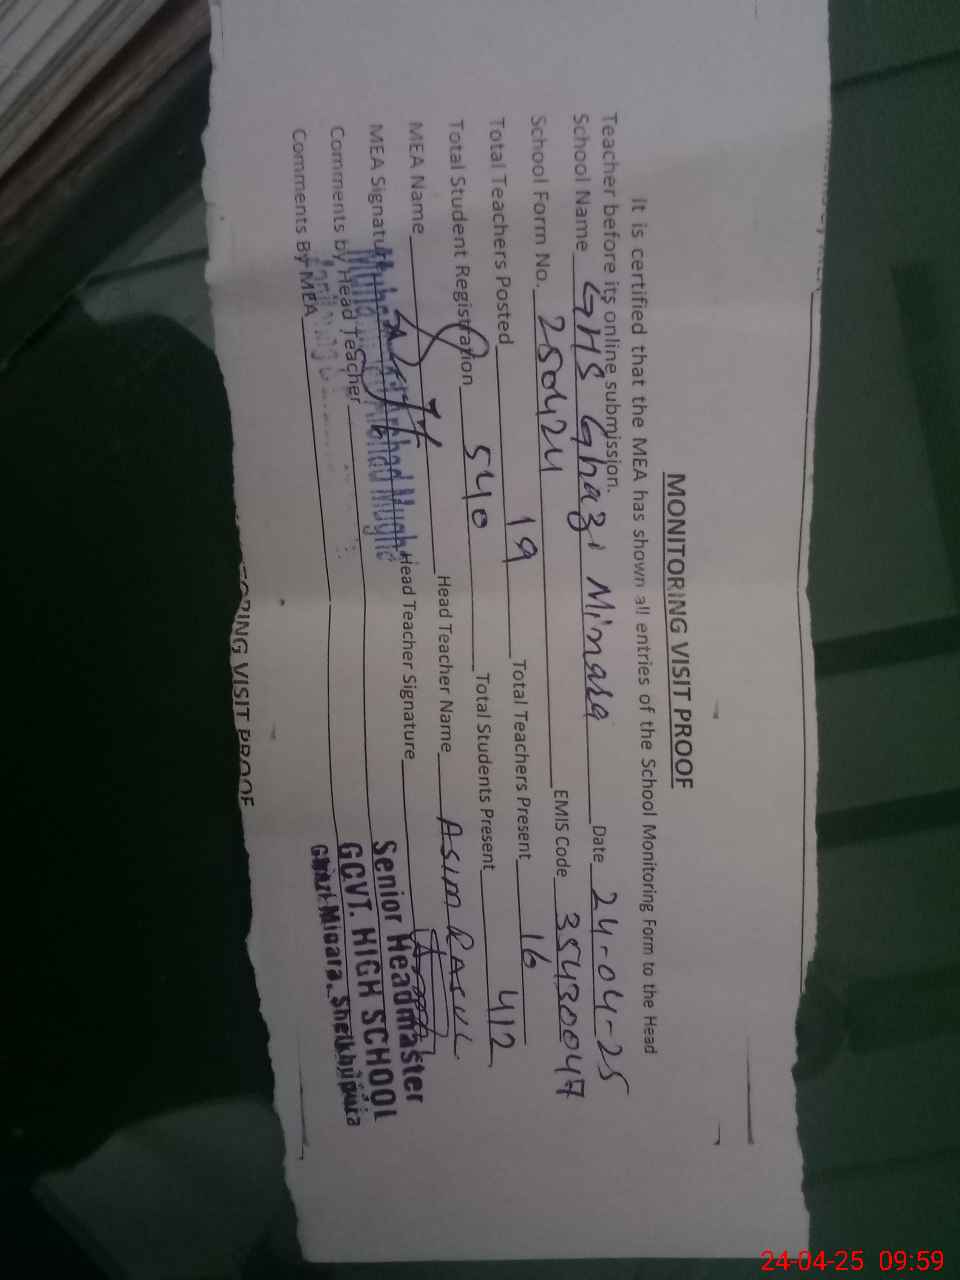 MONITORING VISIT PROOF
It is certified that the MEA has shown all entries of the School Monitoring Form to the Head
Teacher before its online submission.
School Name GHS Ghazi Minara Date 24-04-25
School Form No. 250424 EMIS Code 35430047
Total Teachers Posted 19 Total Teachers Present 16
Total Student Registration 540 Total Students Present 412
MEA Name Head Teacher Name ASIM RASUL
MEA Signature Head Teacher Signature
Senior Headmaster
Comments by Head Teacher
GOVT. HIGH SCHOOL
Comments By MEA
Ghazi Minara, Sheikhupura
VISIT PROOF
24-04-25 09:59